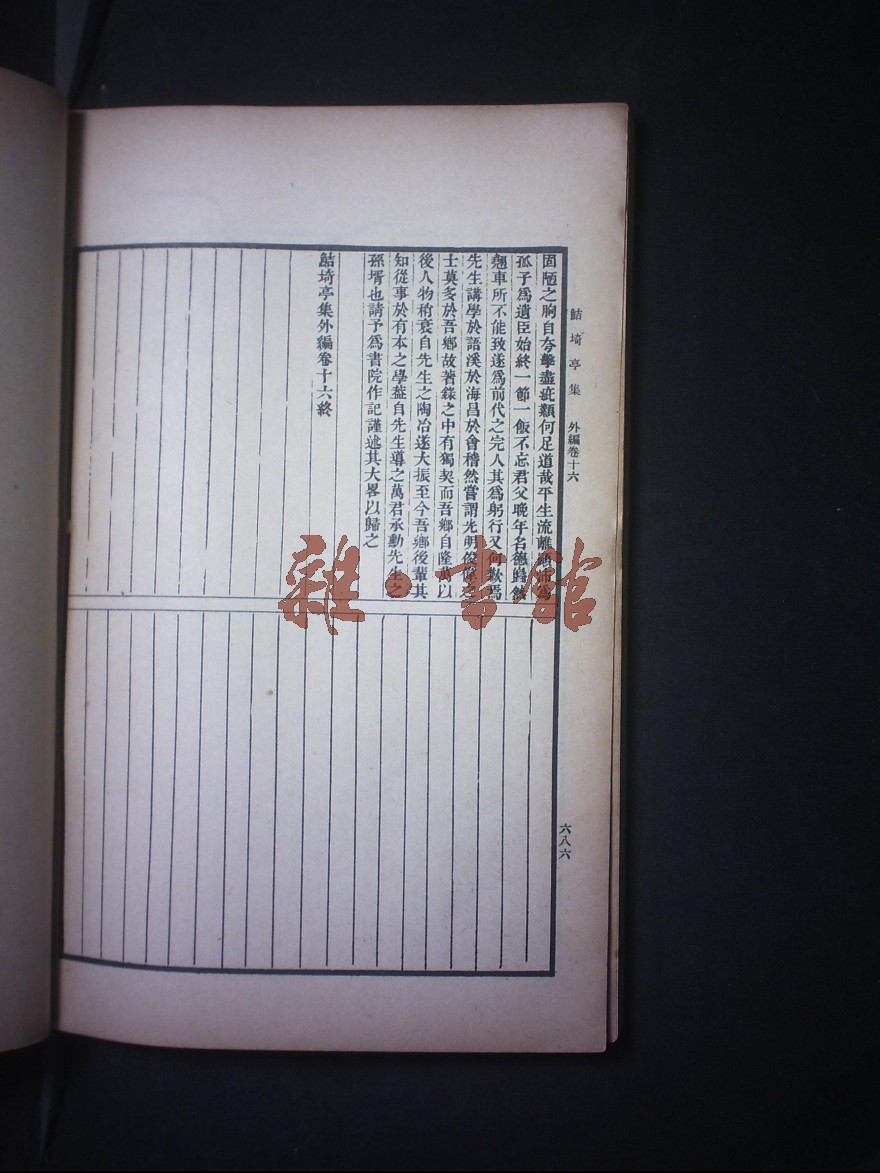 鮚埼亭集　外編卷十六
固陋之胸自夸擊盡疵纇何足道哉平生流離顛沛爲
孤子爲遺臣始終一節一飯不忘君父晚年名德巋然
翹車所不能致遂爲前代之完人其爲躬行又何歉焉
先生講學於語溪於海昌於會稽然嘗謂光明俊偉之
士莫多於吾鄉故著錄之中有獨契而吾鄉自隆萬以
後人物稍衰自先生之陶冶遂大振至今吾鄉後輩其
知從事於有本之學葢自先生導之萬君承勳先生之
孫壻也請予爲書院作記謹述其大畧以歸之
鮚埼亭集外編卷十六終
六八六
雜·書館